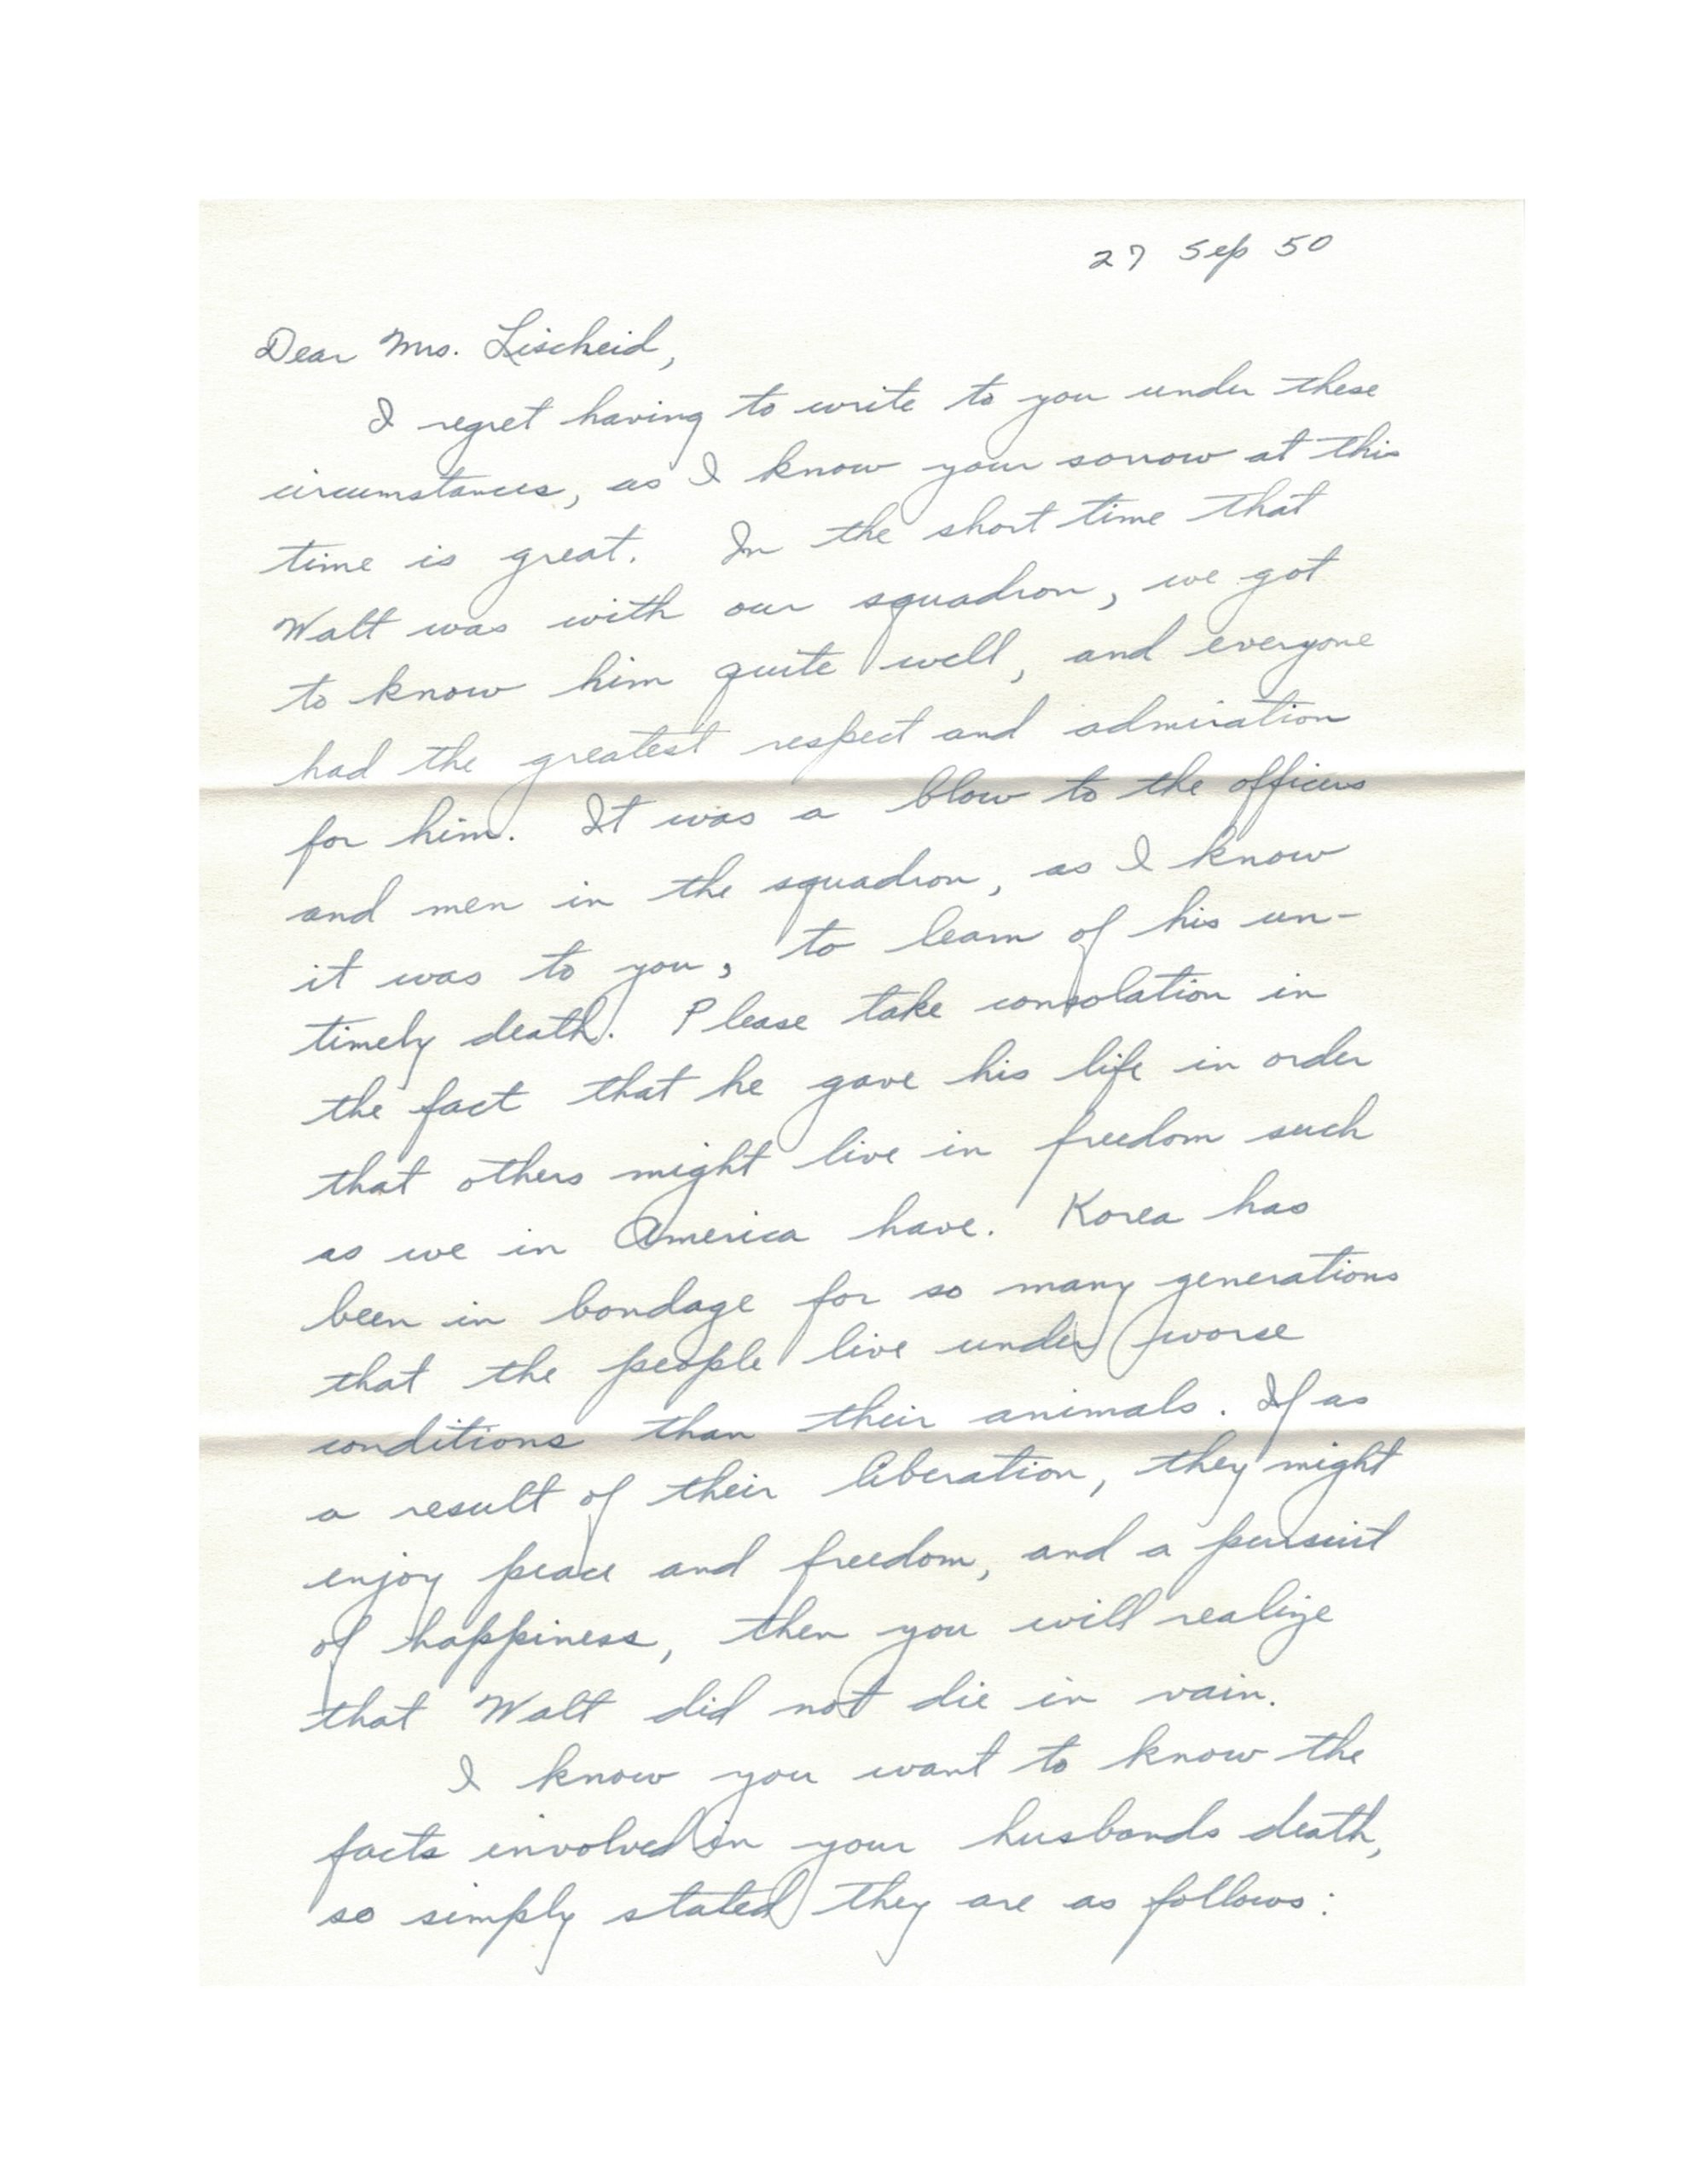 27 Sep 50
Dear Mrs. Lischeid,
I regret having to write to you under these
circumstances, as I know your sorrow at this
time is great. In the short time that
Walt was with our squadron, we got
to know him quite well, and everyone
had the greatest respect and admiration
for him. It was a blow to the officers
and men in the squadron, as I know
it was to you, to learn of his un-
timely death. Please take consolation in
the fact that he gave his life in order
that others might live in freedom such
as we in America have. Korea has
been in bondage for so many generations
that the people live under worse
conditions than their animals. If as
a result of their liberation, they might
enjoy peace and freedom, and a pursuit
of happiness, then you will realize
that Walt did not die in vain.
I know you want to know the
facts involved in your husbands death,
so simply stated they are as follows: